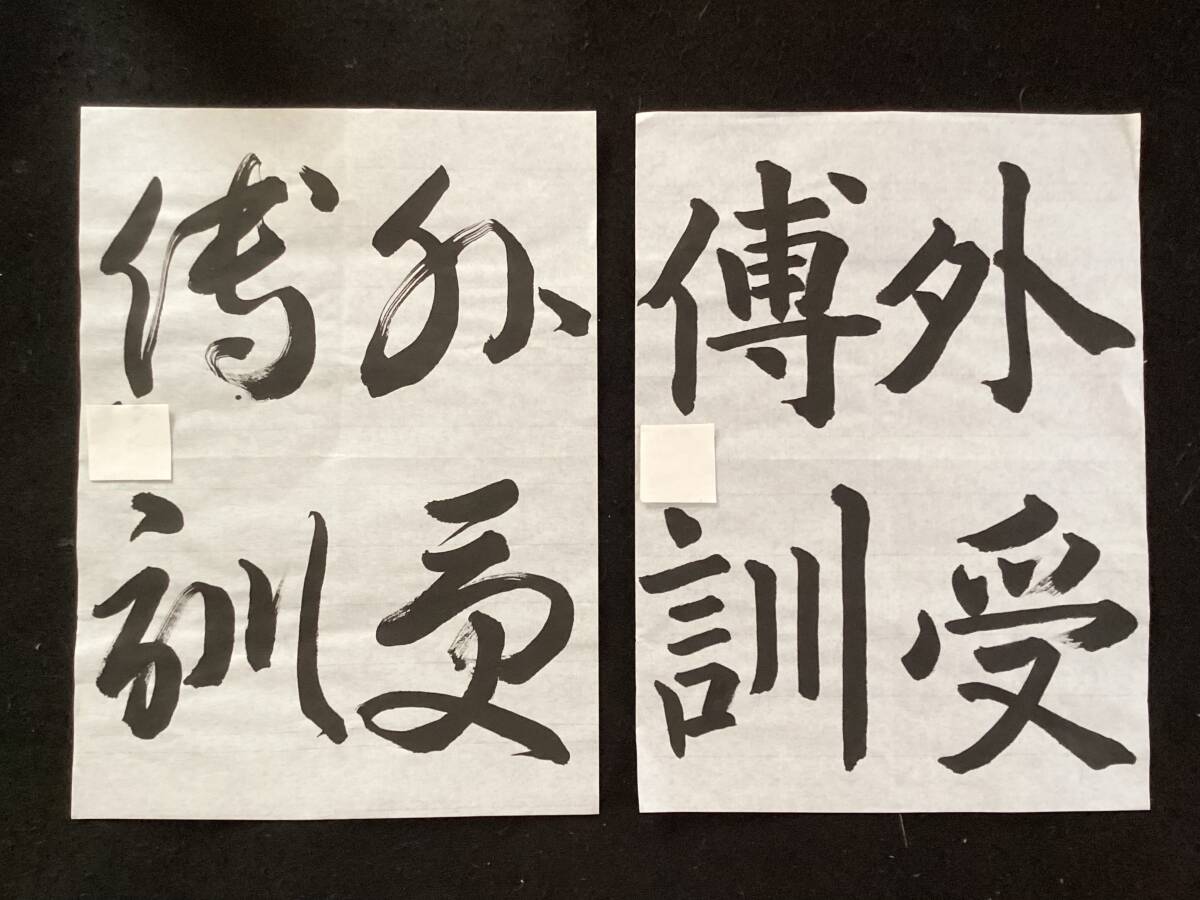 外受
傅訓
外受
傅訓